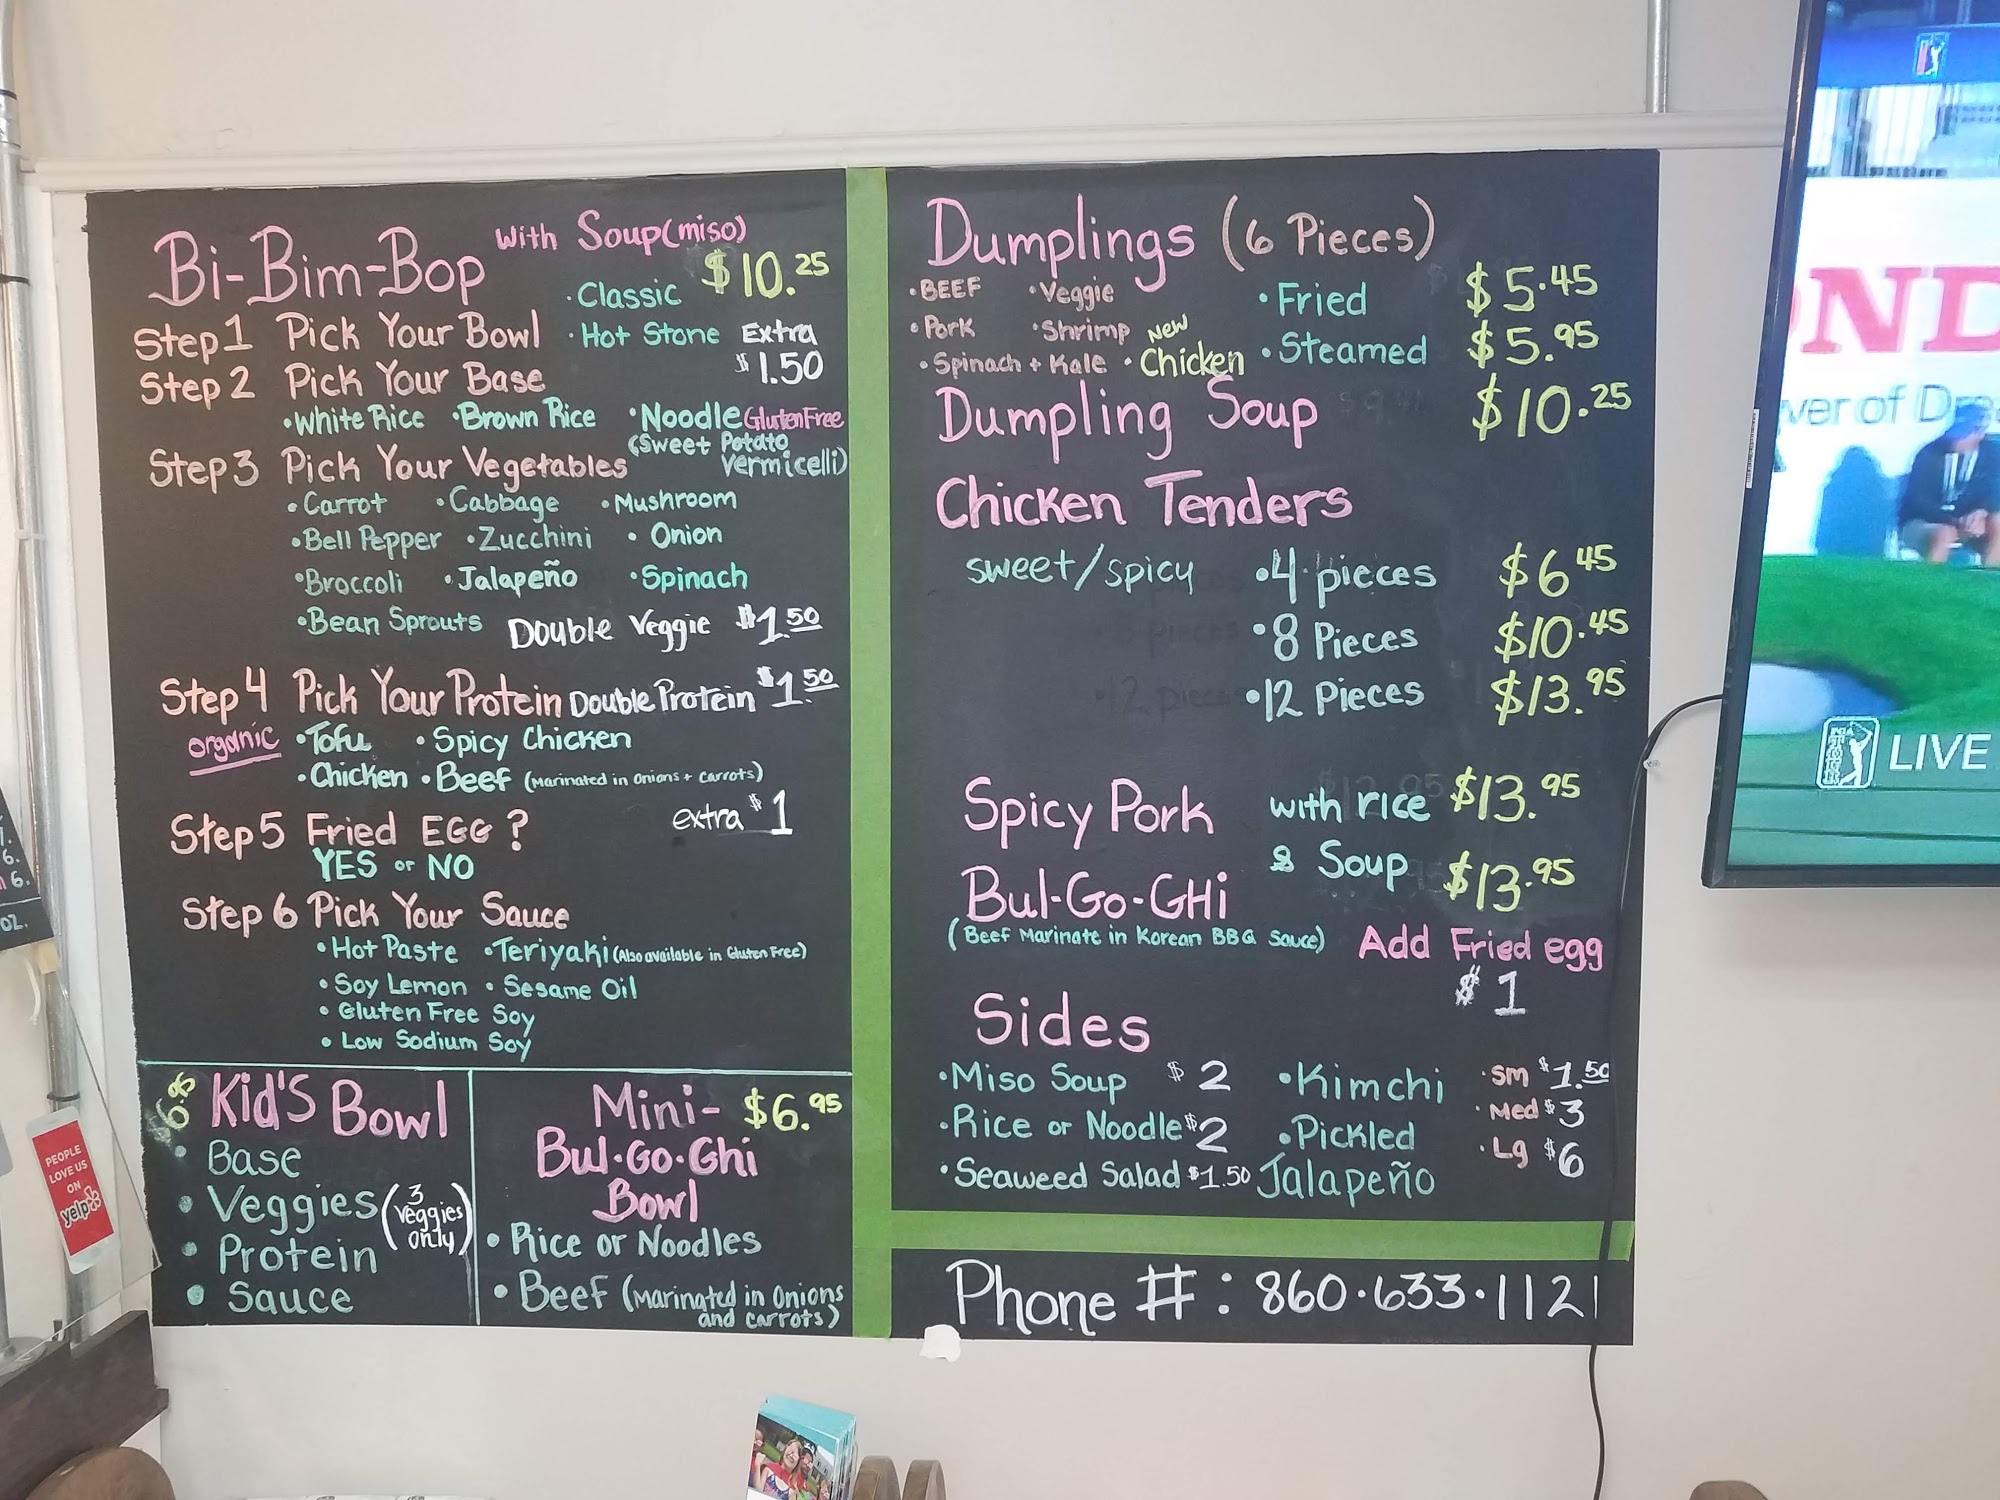 Bi-Bim-Bop with Soup(miso)
$10.25
• Classic
• Hot Stone Extra $1.50
Step 1 Pick Your Bowl
Step 2 Pick Your Base
• White Rice • Brown Rice • Noodle Gluten Free
(Sweet Potato
Vermicelli)
Step 3 Pick Your Vegetables
• Carrot • Cabbage • Mushroom
• Bell Pepper • Zucchini • Onion
• Broccoli • Jalapeño • Spinach
• Bean Sprouts Double Veggie $1.50
Step 4 Pick Your Protein Double Protein $1.50
organic • Tofu • Spicy Chicken
• Chicken • Beef (Marinated in onions + carrots)
Step 5 Fried EGG? extra $1
YES or NO
Step 6 Pick Your Sauce
• Hot Paste • Teriyaki (Also available in Gluten Free)
• Soy Lemon • Sesame Oil
• Gluten Free Soy
• Low Sodium Soy
$6.95 Kid'S Bowl
• Base
• Veggies (3 Veggies only)
• Protein
• Sauce
Mini- $6.95
Bul-Go-Ghi
Bowl
• Rice or Noodles
• Beef (Marinated in Onions
and carrots)
Dumplings (6 Pieces)
• BEEF • Veggie • Fried $5.45
• Pork • Shrimp New • Steamed $5.95
• Spinach + Kale • Chicken
Dumpling Soup $10.25
Chicken Tenders
sweet/spicy • 4 pieces $6.45
• 8 Pieces $10.45
• 12 Pieces $13.95
Spicy Pork with rice $13.95
& Soup
Bul-Go-GHi $13.95
(Beef Marinate in Korean BBQ Sauce)
Add Fried egg
$1
Sides
• Miso Soup $2 • Kimchi • Sm $1.50
• Rice or Noodle $2 • Pickled • Med $3
• Seaweed Salad $1.50 Jalapeño • Lg $6
Phone #: 860·633·1121
PEOPLE
LOVE US
ON
yelp
ND
ver of Dre
LIVE